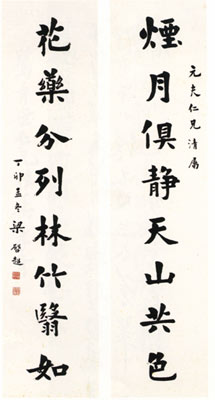 元仁兄清屬
煙月俱静天山共色
花藥分列林竹翳如
丁卯孟冬梁啓超